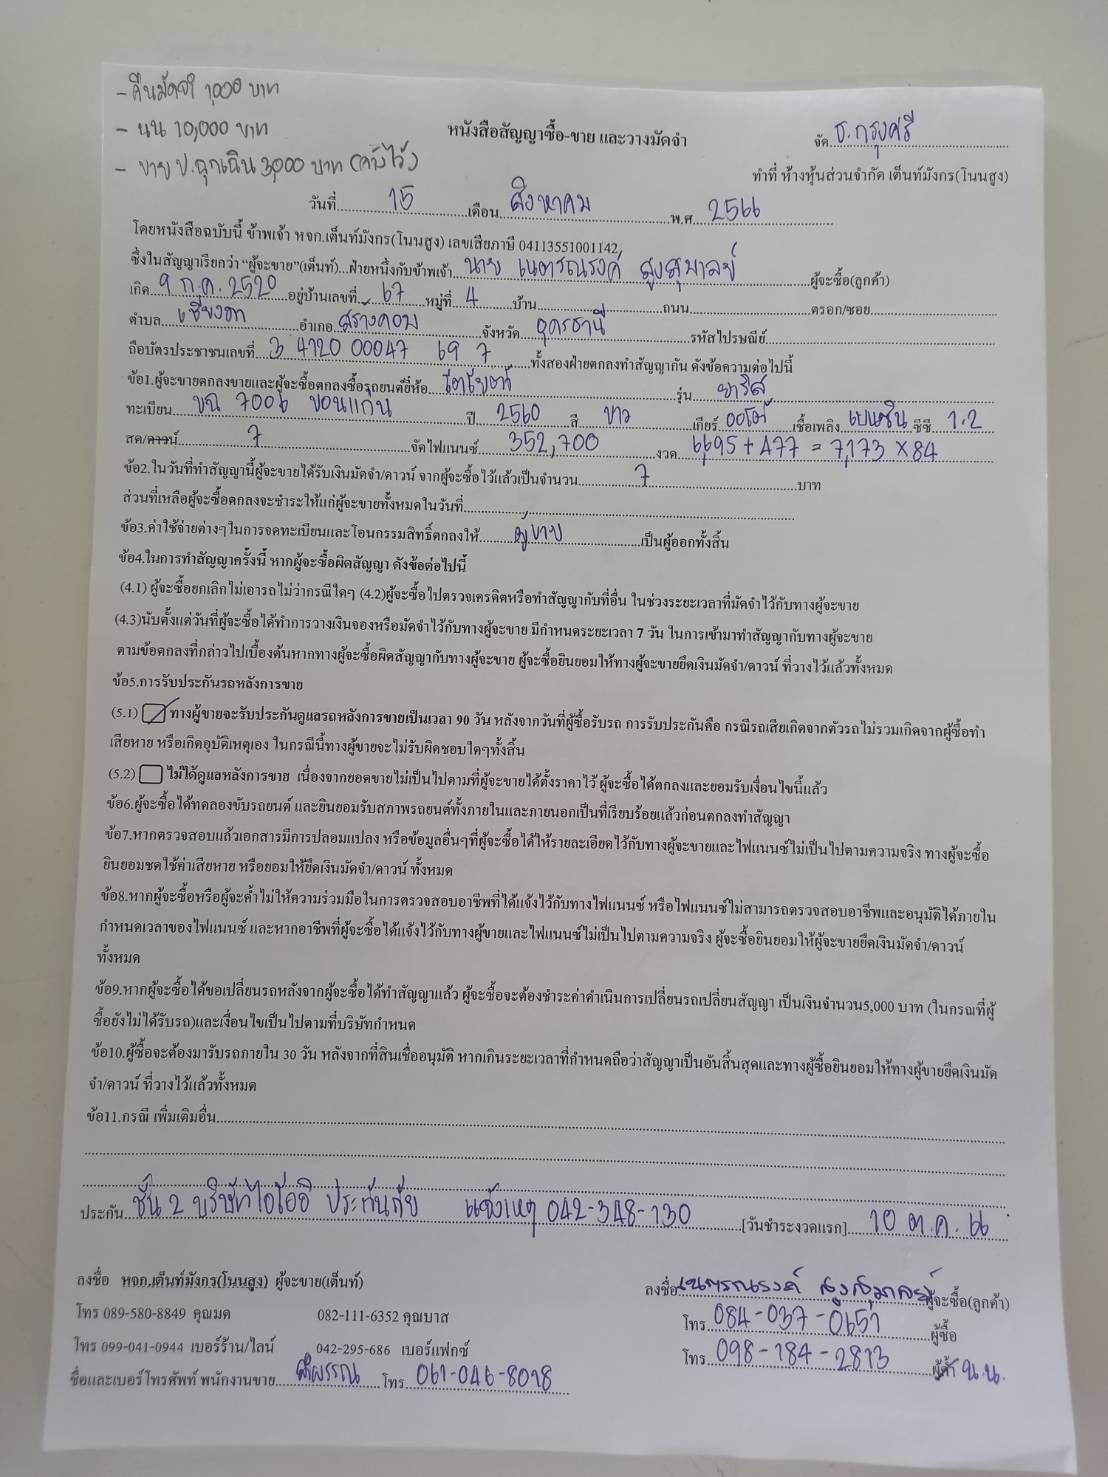 - คืนมัดจำ 1,000 บาท
- นน 10,000 บาท
- ขาย ป.ฉุกเฉิน 3,000 บาท
หนังสือสัญญาซื้อ-ขาย และวางมัดจำ
จัด ธ.กรุงศรี
ทำที่ ห้างหุ้นส่วนจำกัด เต็นท์มังกร(โนนสูง)
วันที่ 15 เดือน สิงหาคม พ.ศ. 2566
โดยหนังสือฉบับนี้ ข้าพเจ้า หจก.เต็นท์มังกร(โนนสูง) เลขเสียภาษี 04113551001142
ซึ่งในสัญญาเรียกว่า "ผู้จะขาย"(เต็นท์)...ฝ่ายหนึ่งกับข้าพเจ้า นาย เนตรณรงค์ สูงสุมาลย์ ผู้จะซื้อ(ลูกค้า)
เกิด 9 ก.ค. 2520 อยู่บ้านเลขที่ 67 หมู่ที่ 4 บ้าน ถนน ตรอก/ซอย
ตำบล เชียงดา อำเภอ สร้างคอม จังหวัด อุดรธานี รหัสไปรษณีย์
ถือบัตรประชาชนเลขที่ 3 4120 00047 69 7 ทั้งสองฝ่ายตกลงทำสัญญากัน ดังข้อความต่อไปนี้
ข้อ1.ผู้จะขายตกลงขายและผู้จะซื้อตกลงซื้อรถยนต์ยี่ห้อ โตโยต้า รุ่น ยาริส
ทะเบียน ขฉ 7006 ขอนแก่น ปี 2560 สี ขาว เกียร์ ออโต้ เชื้อเพลิง เบนซิน ซีซี 1.2
สด/ดาวน์ 7 จัดไฟแนนซ์ 352,700 งวด 6,695 + 477 = 7,173 × 84
ข้อ2.ในวันที่ทำสัญญานี้ผู้จะขายได้รับเงินมัดจำ/ดาวน์ จากผู้จะซื้อไว้แล้วเป็นจำนวน 7 บาท
ส่วนที่เหลือผู้จะซื้อตกลงจะชำระให้แก่ผู้จะขายทั้งหมดในวันที่
ข้อ3.ค่าใช้จ่ายต่างๆในการจดทะเบียนและโอนกรรมสิทธิ์ตกลงให้ ผู้ขาย เป็นผู้ออกทั้งสิ้น
ข้อ4.ในการทำสัญญาครั้งนี้ หากผู้จะซื้อผิดสัญญา ดังข้อต่อไปนี้
(4.1) ผู้จะซื้อยกเลิกไม่เอารถไม่ว่ากรณีใดๆ (4.2)ผู้จะซื้อไปตรวจเครดิตหรือทำสัญญากับที่อื่น ในช่วงระยะเวลาที่มัดจำไว้กับทางผู้จะขาย
(4.3)นับตั้งแต่วันที่ผู้จะซื้อได้ทำการวางเงินจองหรือมัดจำไว้กับทางผู้จะขาย มีกำหนดระยะเวลา 7 วัน ในการเข้ามาทำสัญญากับทางผู้จะขาย
ตามข้อตกลงที่กล่าวไปเบื้องต้นหากทางผู้จะซื้อผิดสัญญากับทางผู้จะขาย ผู้จะซื้อยินยอมให้ทางผู้จะขายยึดเงินมัดจำ/ดาวน์ ที่วางไว้แล้วทั้งหมด
ข้อ5.การรับประกันรถหลังการขาย
(5.1) ทางผู้ขายจะรับประกันดูแลรถหลังการขายเป็นเวลา 90 วัน หลังจากวันที่ผู้ซื้อรับรถ การรับประกันคือ กรณีรถเสียเกิดจากตัวรถไม่รวมเกิดจากผู้ซื้อทำ
เสียหาย หรือเกิดอุบัติเหตุเอง ในกรณีนี้ทางผู้ขายจะไม่รับผิดชอบใดๆทั้งสิ้น
(5.2) ไม่ได้ดูแลหลังการขาย เนื่องจากยอดขายไม่เป็นไปตามที่ผู้จะขายได้ตั้งราคาไว้ ผู้จะซื้อได้ตกลงและยอมรับเงื่อนไขนี้แล้ว
ข้อ6.ผู้จะซื้อได้ทดลองขับรถยนต์ และยินยอมรับสภาพรถยนต์ทั้งภายในและภายนอกเป็นที่เรียบร้อยแล้วก่อนตกลงทำสัญญา
ข้อ7.หากตรวจสอบแล้วเอกสารมีการปลอมแปลง หรือข้อมูลอื่นๆที่ผู้จะซื้อได้ให้รายละเอียดไว้กับทางผู้จะขายและไฟแนนซ์ไม่เป็นไปตามความจริง ทางผู้จะซื้อ
ยินยอมชดใช้ค่าเสียหาย หรือยอมให้ยึดเงินมัดจำ/ดาวน์ ทั้งหมด
ข้อ8.หากผู้จะซื้อหรือผู้จะค้ำไม่ให้ความร่วมมือในการตรวจสอบอาชีพที่ได้แจ้งไว้กับทางไฟแนนซ์ หรือไฟแนนซ์ไม่สามารถตรวจสอบอาชีพและอนุมัติได้ภายใน
กำหนดเวลาของไฟแนนซ์ และหากอาชีพที่ผู้จะซื้อได้แจ้งไว้กับทางผู้ขายและไฟแนนซ์ไม่เป็นไปตามความจริง ผู้จะซื้อยินยอมให้ผู้จะขายยึดเงินมัดจำ/ดาวน์
ทั้งหมด
ข้อ9.หากผู้จะซื้อได้ขอเปลี่ยนรถหลังจากผู้จะซื้อได้ทำสัญญาแล้ว ผู้จะซื้อจะต้องชำระค่าดำเนินการเปลี่ยนรถเปลี่ยนสัญญา เป็นเงินจำนวน5,000 บาท (ในกรณที่ผู้
ซื้อยังไม่ได้รับรถ)และเงื่อนไขเป็นไปตามที่บริษัทกำหนด
ข้อ10.ผู้ซื้อจะต้องมารับรถภายใน 30 วัน หลังจากที่สินเชื่ออนุมัติ หากเกินระยะเวลาที่กำหนดถือว่าสัญญาเป็นอันสิ้นสุดและทางผู้ซื้อยินยอมให้ทางผู้ขายยึดเงินมัด
จำ/ดาวน์ ที่วางไว้แล้วทั้งหมด
ข้อ11.กรณี เพิ่มเติมอื่น
ประกัน ชั้น 2 บริษัทไอโออิ ประกันภัย แจ้งเหตุ 042-348-130 [วันชำระงวดแรก] 10 ต.ค. 66
ลงชื่อ หจก.เต็นท์มังกร(โนนสูง) ผู้จะขาย(เต็นท์)
ลงชื่อ เนตรณรงค์ สูงสุมาลย์ ผู้จะซื้อ(ลูกค้า)
โทร 089-580-8849 คุณมด 082-111-6352 คุณบาส
โทร. 084-037-0651 ผู้ซื้อ
โทร 099-041-0944 เบอร์ร้าน/ไลน์ 042-295-686 เบอร์แฟกซ์
โทร. 098-184-2813 ผู้ค้ำ น.น.
ชื่อและเบอร์โทรศัพท์ พนักงานขาย โทร. 061-046-8018